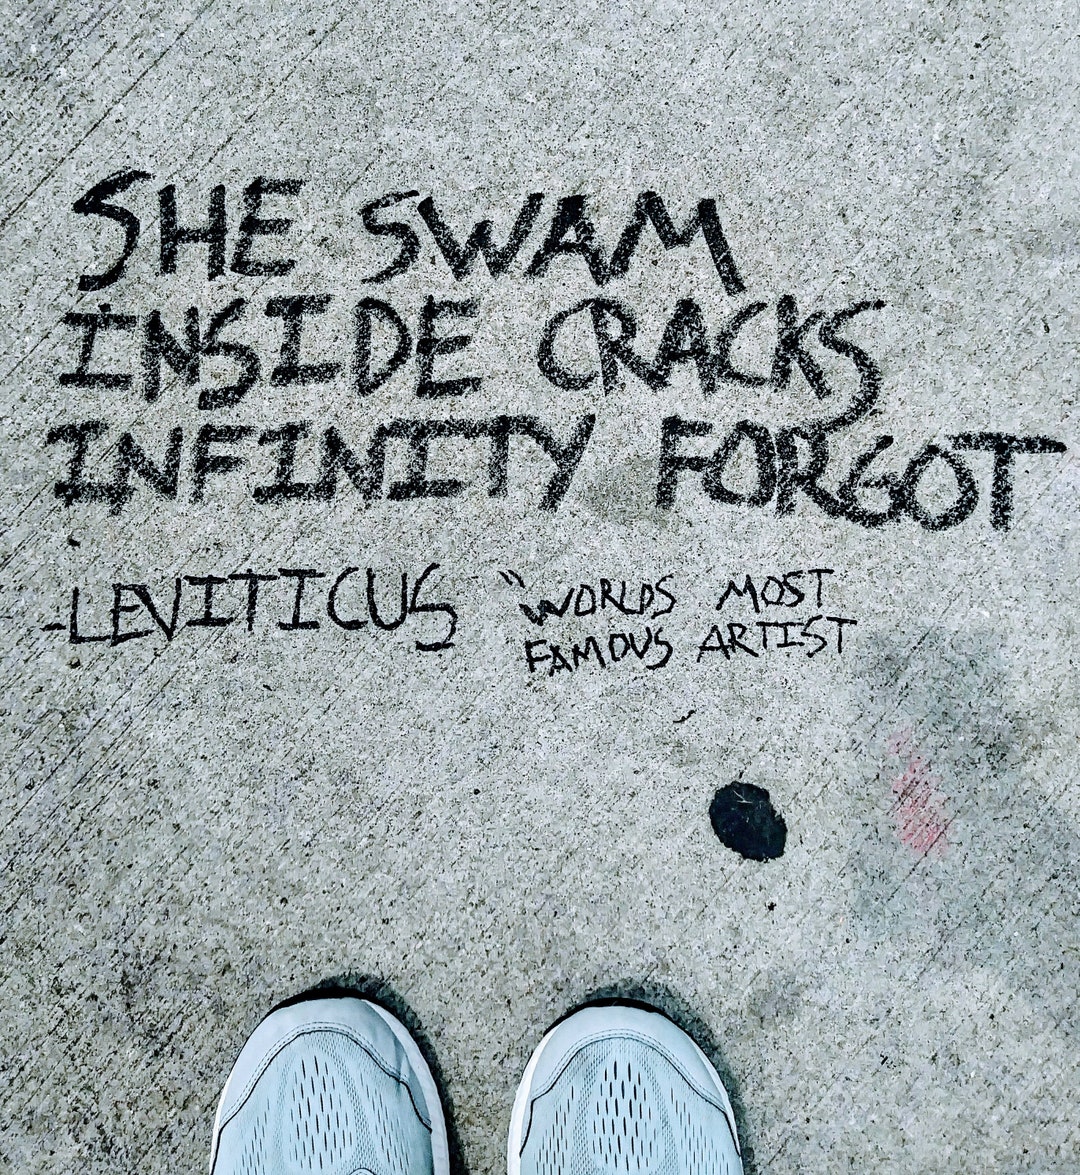 SHE SWAM
INSIDE CRACKS
INFINITY FORGOT
-LEVITICUS "WORLDS MOST
FAMOUS ARTIST